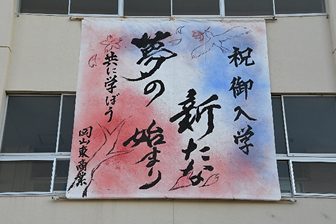 祝御入学
新たな
夢の始まり
共に学ぼう
岡山東商業